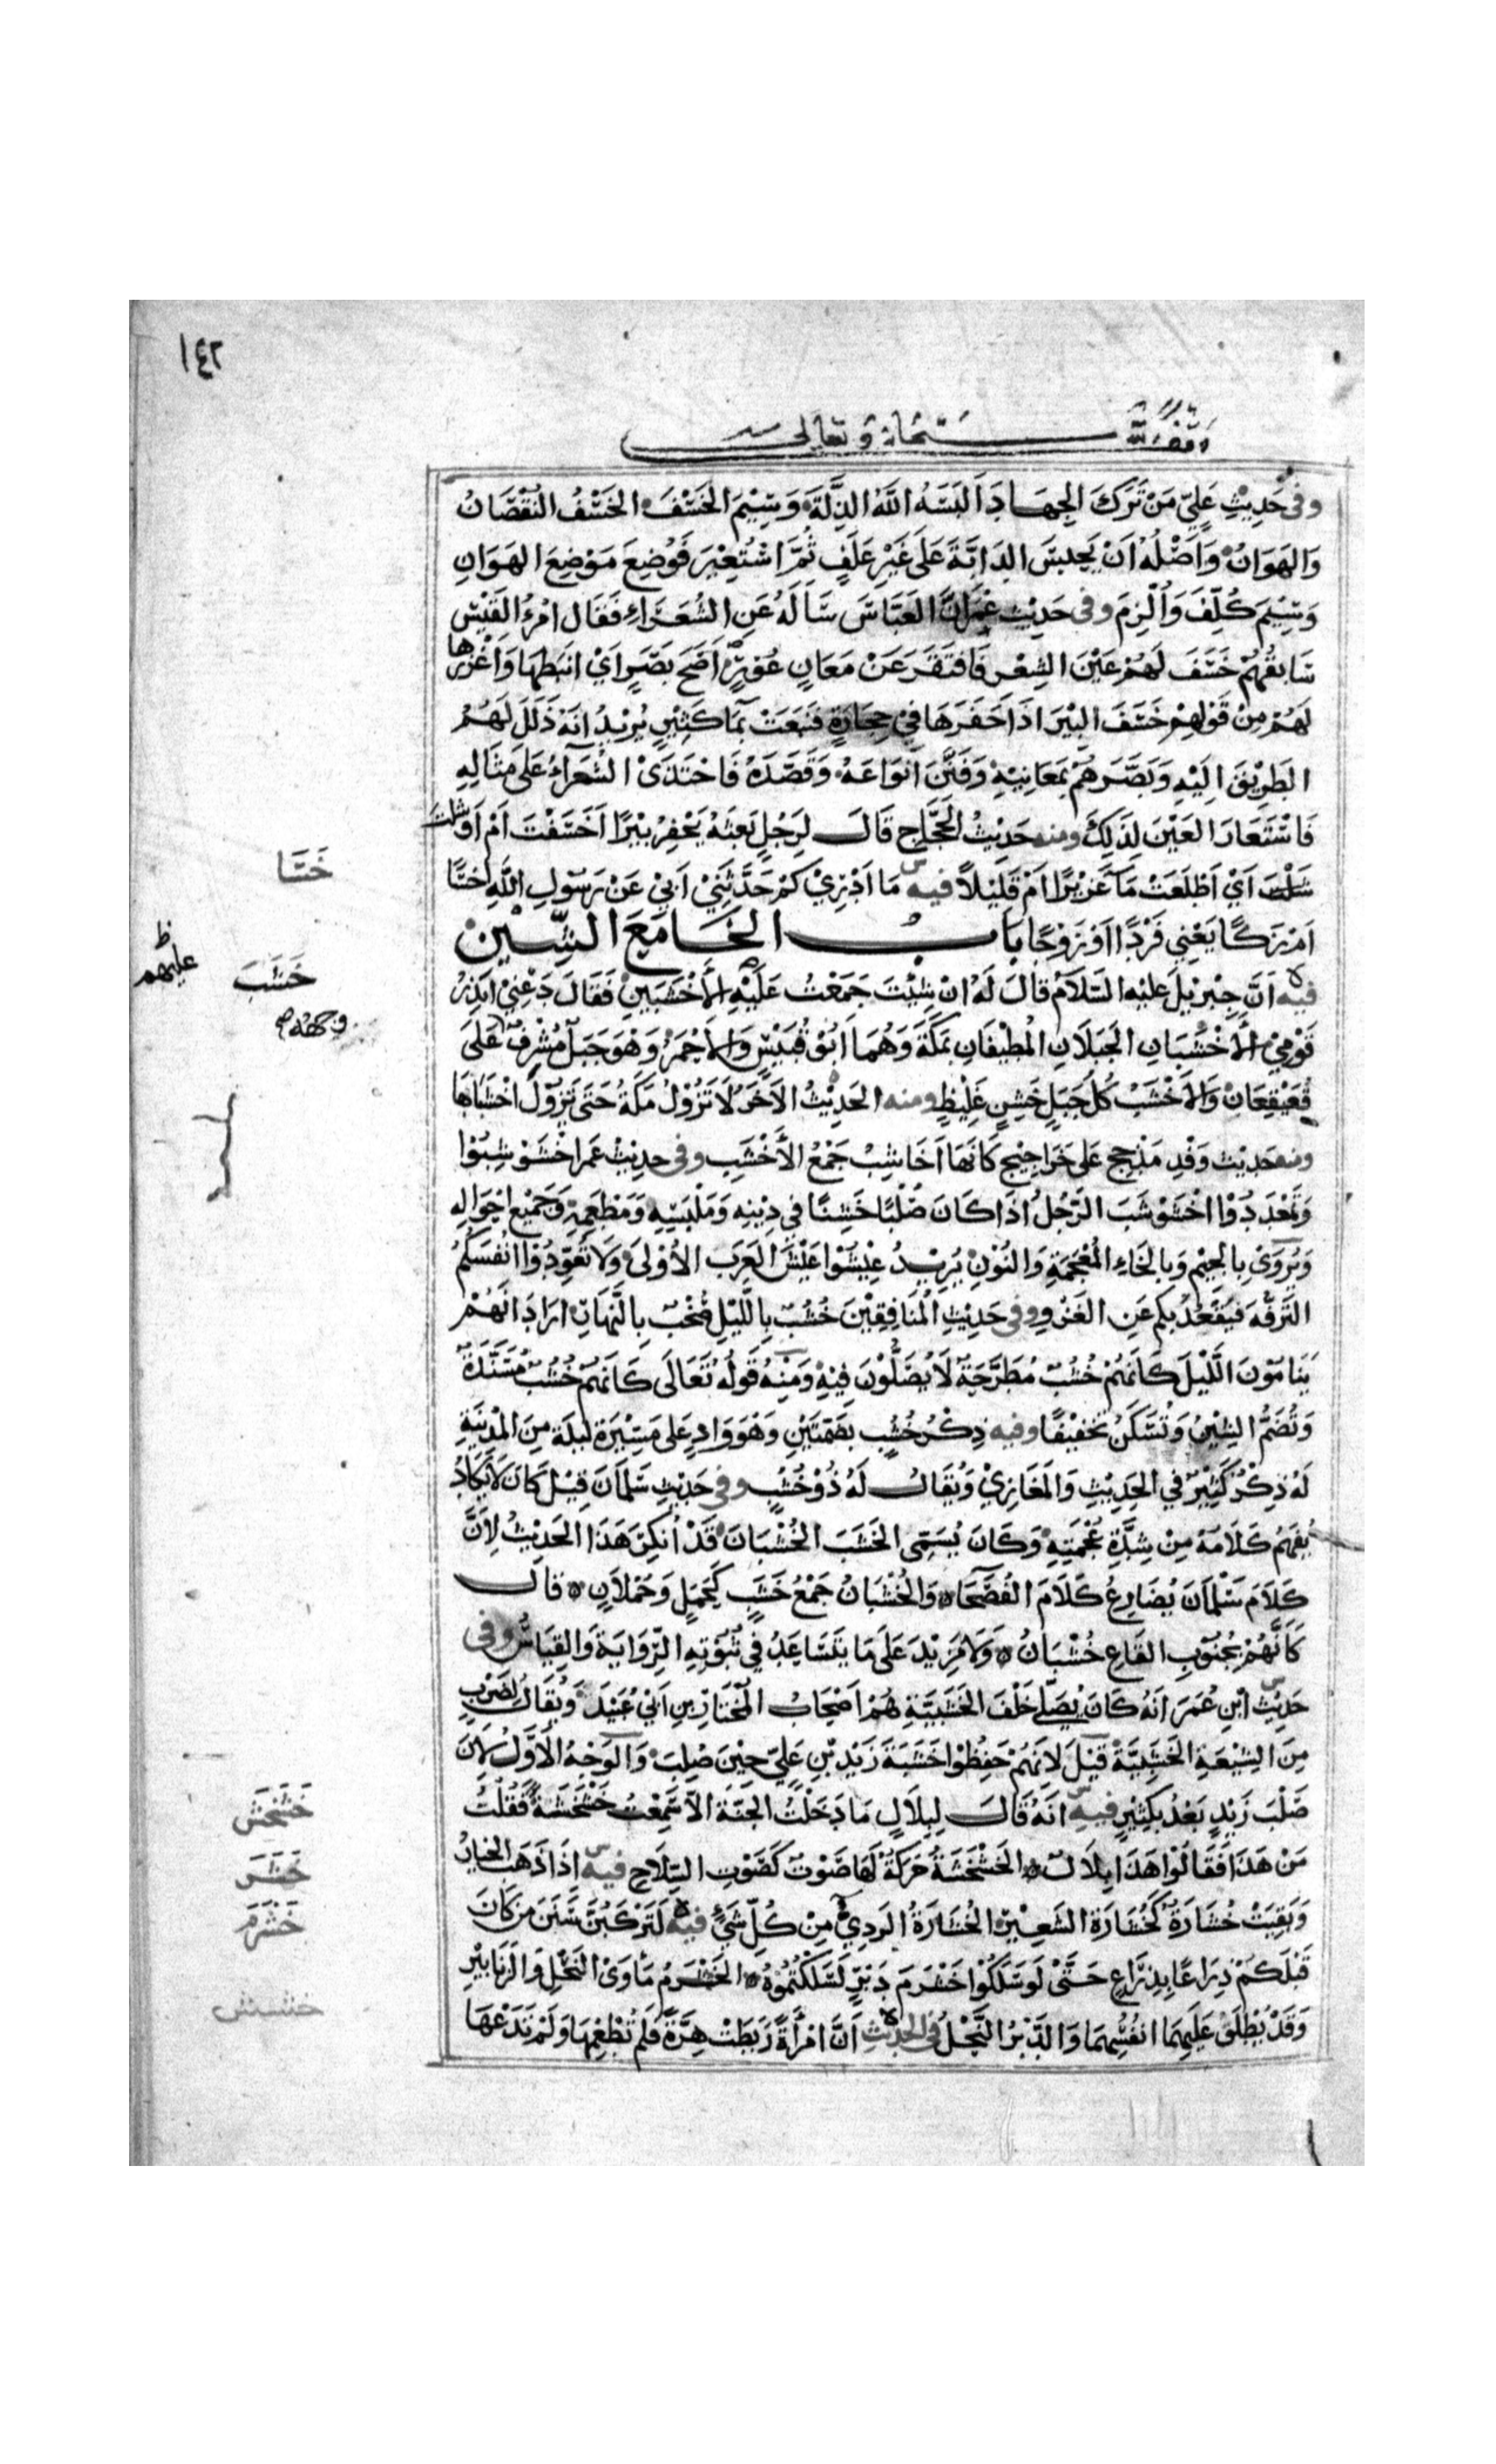 ١٤٢
وقف لله سبحانه وتعالى
وفى حَدِيْثِ عَلِيّ مَنْ تَرَكَ الجِهَادَ اَلْبَسَهُ اللهُ الذِّلَّةَ وَسِيْمَ الخَسْفَ الخَسْفُ النُقْصَانُ
وَالهَوَانُ وَاَصْلُهُ اَنْ يَحْبِسَ الدَابَّةَ عَلَى غَيْرِ عَلَفٍ ثُمَّ اسْتُعِيْرَ فَوُضِعَ مَوْضِعَ الهَوَانِ
وَسِيْمَ كُلِّفَ وَاُلْزِمَ وفى حَدِيْثِ عُمَرَ اَنَّ العَبَّاسَ سَاَلَهُ عَنِ الشُعَرَاءِ فَقَالَ امْرُءُ القَيْسِ
سَابِقُهُمْ خَسَفَ لَهُمْ عَيْنَ الشِعْرِ فَافْتَقَرَ عَنْ مَعَانٍ عُوْرٍ اَصَحَّ بَصَرٍ اَيْ اَنْبَطَهَا وَاَغْزَرَهَا
لَهُمْ مِنْ قَوْلِهِمْ خَسَفَ البِيْرَ اذَا حَفَرَهَا فِيْ حِجَارَةٍ فَنَبَعَتْ بِمَاءٍ كَثِيْرٍ يُرِيْدُ اَنَّهُ ذَلَّلَ لَهُمْ
الطَرِيْقَ اِلَيْهِ وَبَصَّرَهُمْ بِمَعَانِيْهِ وَفَنَّنَ اَنْوَاعَهُ وَقَصَّدَهُ فَاحْتَذَىْ الشُعَرَاءُ عَلَى مِثَالِهِ
فَاسْتَعَارَ العَيْنَ لِذَلِكَ ومنه حَدِيْثُ الحَجَّاجِ قَالَ لِرَجُلٍ بَعَثَهُ يَحْفِرُ بِيْرًا اَخَسَفْتَ اَمْ اَوْشَلْتَ
اَيْ اَطْلَعْتَ مَاءً غَزِيْرًا اَمْ قَلِيْلاً فيه مَا اَدْرِيْ كَمْ حَدَّثَنِيْ اَبِيْ عَنْ رَسُوْلِ اللهِ اَخَسًا
اَمْ زَكًا يَعْنِي فَرْدًا اَوْ زَوْجًا بَابُ الخَاءِ مَعَ الشِّيْنِ
فيه اَنَّ جِبْرِيْلَ عَلَيْهِ السَلاَمُ قَالَ لَهُ انْ شِئْتَ جَمَعْتُ عَلَيْهِ الأَخْشَبَيْنِ فَقَالَ دَعْنِيْ اُنْذِرْ
قَوْمِيْ الأَخْشَبَانِ الجَبَلَانِ المُطِيْفَانِ بِمَكَّةَ وَهُمَا اَبُوْ قُبَيْسٍ وَالأَحْمَرُ وَهُوَ جَبَلٌ مُشْرِفٌ عَلَى
قُعَيْقِعَانَ وَالأَخْشَبُ كُلُّ جَبَلٍ خَشِنٍ غَلِيْظٍ ومنه الحَدِيْثُ الآخَرُ لَا تَزُوْلُ مَكَّةُ حَتَى تَزُوْلَ اَخْشَبَاهَا
ومنه حَدِيْثُ وَفْدِ مَذْحِجٍ عَلَى حَرَاجِيْجَ كَاَنَّهَا اَخَاشِبُ جَمْعُ الأَخْشَبِ وفى حَدِيْثِ عُمَرَ اخْشَوْشِبُوْا
وَتَمَعْدَدُوْا اخْشَوْشَبَ الرَّجُلُ اذَا كَانَ صُلْبًا خَشِنًا فِي دِيْنِهِ وَمَلْبَسِهِ وَمَطْعَمِهِ وَجَمِيْعِ اَحْوَالِهِ
وَيُرْوَىْ بِالجِيْمِ وَبِالخَاءِ المُعْجَمَةِ وَالنُوْنِ يُرِيْدُ عِيْشُوْا عَيْشَ العَرَبِ الأُوْلَى وَلَا تُعَوِّدُوْا اَنْفُسَكُمْ
التَرَفُّهَ فَيَقْعُدُ بِكُمْ عَنِ الغَزْوِ وفى حَدِيْثِ المُنَافِقِيْنَ خُشُبٌ بِاللَّيْلِ صُخُبٌ بِالنَّهَارِ ارَادَ اَنَّهُمْ
يَنَامُوْنَ اللَّيْلَ كَاَنَّهُمْ خُشُبٌ مُطَرَّحَةٌ لَا يُصَلُّوْنَ فِيْهِ وَمِنْهُ قَوْلُهُ تَعَالَى كَاَنَّهُمْ خُشُبٌ مُسَنَّدَةٌ
وَتُضَمُّ الشِيْنُ وَتُسَكَّنُ تَخْفِيْفًا وفيه ذِكْرُ خُشُبٍ بِضَمَّتَيْنِ وَهُوَ وَادٍ عَلَى مَسِيْرَةِ لَيْلَةٍ مِنَ المَدِيْنَةِ
لَهُ ذِكْرٌ كَثِيْرٌ فِي الحَدِيْثِ وَالمَغَازِيْ وَيُقَالُ لَهُ ذُوْ خُشُبٍ وفى حَدِيْثِ سَلْمَانَ قِيْلَ كَانَ لَا يَكَادُ
يُفْقَهُ كَلَامُهُ مِنْ شِدَّةِ عُجْمَتِهِ وَكَانَ يُسَمِّى الخَشَبَ الخُشْبَانَ قَدْ اُنْكِرَ هَذَا الحَدِيْثُ لِاَنَّ
كَلَامَ سَلْمَانَ يُضَارِعُ كَلَامَ الفُصَحَاءِ وَالخُشْبَانُ جَمْعُ خَشَبٍ كَحَمَلٍ وَحُمْلَانٍ قَالَ
كَاَنَّهُمْ بِجُنُوْبِ القَاعِ خُشْبَانُ وَلَا مَزِيْدَ عَلَى مَا يَتَسَاعَدُ فِي ثُبُوْتِهِ الرِّوَايَةُ وَالقِيَاسُ وفى
حَدِيْثِ ابْنِ عُمَرَ اَنَّهُ كَانَ يُصَلِّي خَلْفَ الخَشَبِيَّةِ هُمْ اَصْحَابُ المُخْتَارِ بنِ اَبِيْ عُبَيْدٍ وَيُقَالُ لِضَرْبٍ
مِنَ الشِيْعَةِ الخَشَبِيَّةُ قِيْلَ لِاَنَّهُمْ حَفِظُوْا خَشَبَةَ زَيْدِ بْنِ عَلِيٍّ حِيْنَ صُلِبَ وَالوَجْهُ الأَوَّلُ لِاَنَّ
صَلْبَ زَيْدٍ بَعْدُ بِكَثِيْرٍ فيه اَنَّهُ قَالَ لِبِلَالٍ مَا دَخَلْتُ الجَنَّةَ الاَّ سَمِعْتُ خَشْخَشَةً فَقُلْتُ
مَنْ هَذَا فَقَالُوْا هَذَا بِلَالٌ الخَشْخَشَةُ حَرَكَةٌ لَهَا صَوْتٌ كَصَوْتِ السِّلَاحِ فيه اذَا ذَهَبَ الخِيَارُ
وَبَقِيَتْ خُشَارَةٌ كَخُشَارَةِ الشَعِيْرِ الخُشَارَةُ الرَدِيُّ مِنْ كُلِّ شَيْءٍ فيه لَتَرْكَبُنَّ سَنَنَ مَنْ كَانَ
قَبْلَكُمْ ذِرَاعًا بِذِرَاعٍ حَتَّى لَوْ سَلَكُوْا خَشْرَمَ دَبْرٍ لَسَلَكْتُمُوْهُ الخَشْرَمُ مَاْوَىْ النَحْلِ وَالزَنَابِيْرِ
وَقَدْ يُطْلَقُ عَلَيْهِمَا اَنْفُسِهِمَا وَالدَّبْرُ النَحْلُ فى الحديث اَنَّ امْرَأَةً رَبَطَتْ هِرَّةً فَلَمْ تُطْعِمْهَا وَلَمْ تَدَعْهَا
خَسَا
خَشَبَ
عليهم
خَشْخَشَ
خَشَرَ
خَشْرَمَ
خشش